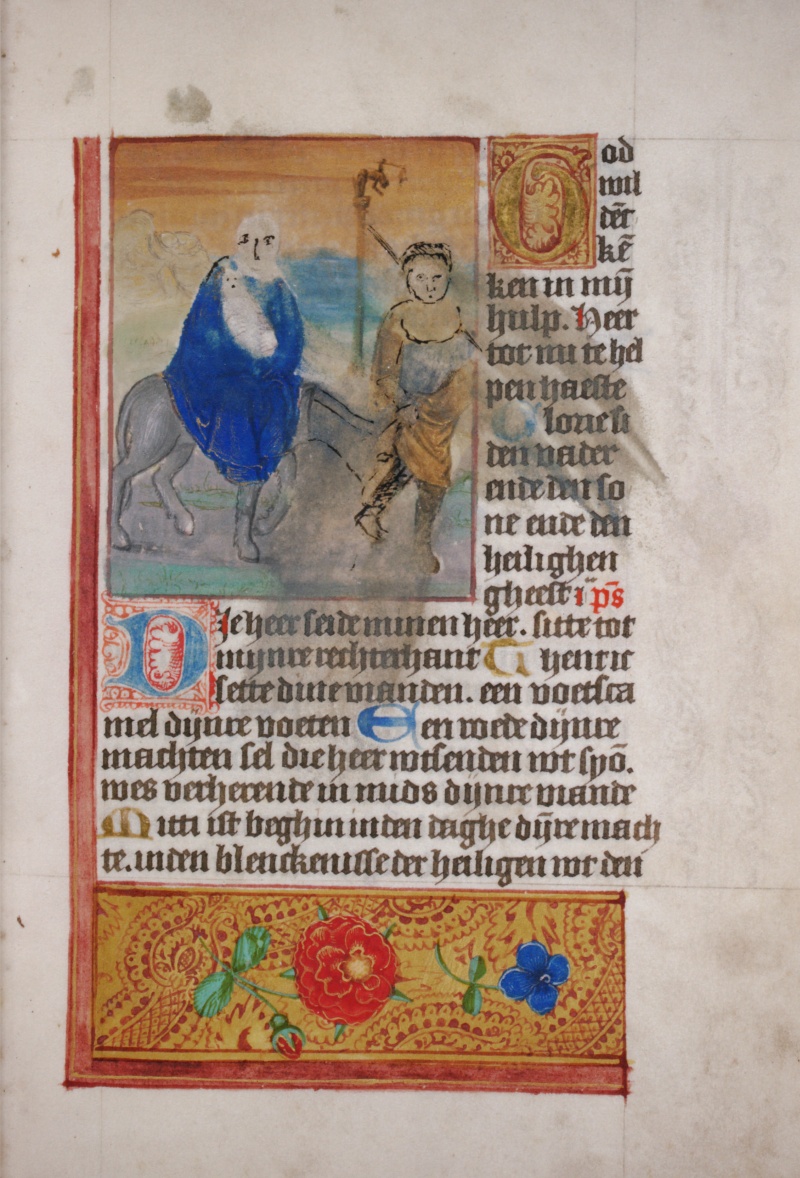 God
wil
dēc
kē
ken in mij
hulp. Heer
tot mi te hel
pen haeste
Glorie si
den vader
ende den so
ne ende den
heilighen
gheest ps̄
Die heer seide minen heer. sitte tot
mijnre rechterhant Thent ic
sette dine vianden. een voetsca
mel dijnre voeten Een roede dijnre
machten sel die heer wtsenden wt syō.
wes verherende in mids dijnre viande
Mitti ist beghin in den daghe dijre mach
te. in den blenckenisse der heiligen wt den